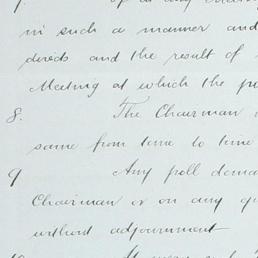 in such a manner and
directs and the result of
Meeting at which the po
8. The Chairman
same from time to time
9 Any poll dema
Chairman or on any qu
without adjournment